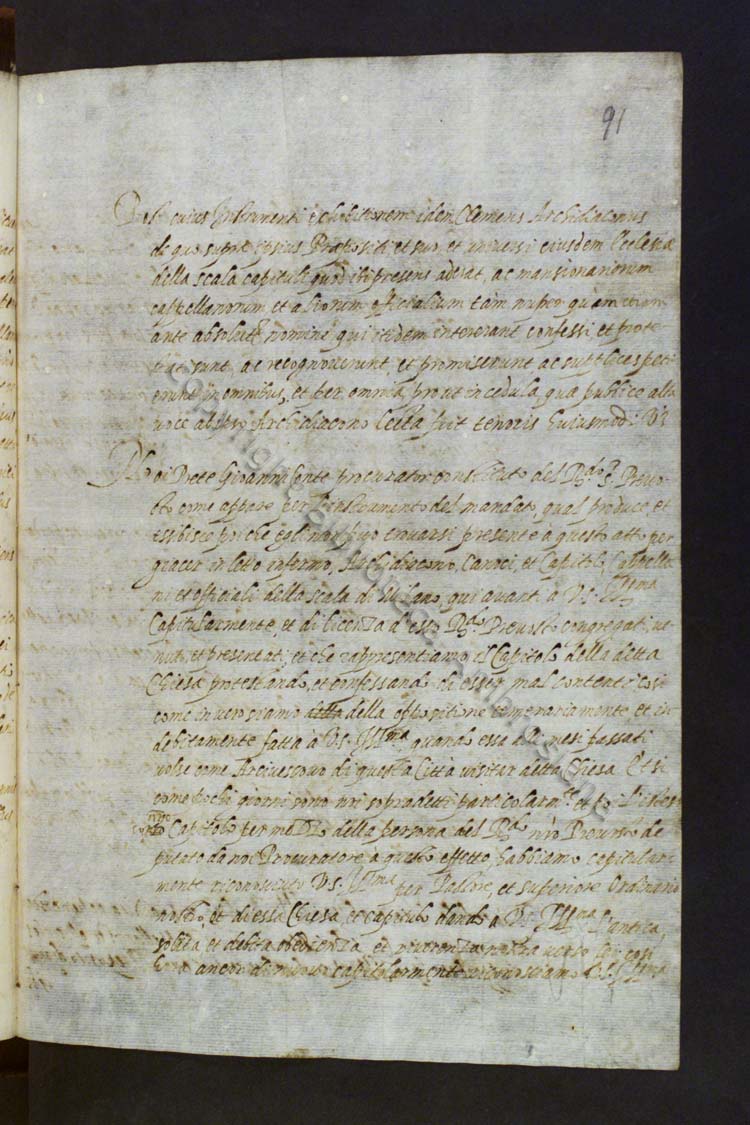 91
Post cuius Instrumenti exhibitionem idem Clemens Archidiaconus
de quo supra ipsius Praepositi et suo et universi eiusdem Ecclesiae
della scala capituli quod ibi presens aderat, ac mansionariorum
cappellanorum et aliorum officialium tam nunc quam
ante absolute nomine qui itidem intererant confessi et prote
stati sunt, ac recognoverunt, et promiserunt ac supplices peti
erunt in omnibus, et per omnia, prout in cedula, quae publice alta
voce ab ipso Archidiacono lecta fuit tenoris huiusmodi. Vz
Noi Prete Giovanni procurator constituto del R.do S.r Prevo
sto come appare per l'instrumento del mandato, qual produce et
essibisce poi che egli non può trovarsi presente a questo atto per
giacer in letto infermo, Archidiacono, Canoci, et Capitolo, Cappella
ni et officiali della scala di Milano, qui avanti à V.S. Ill.ma
Capitularmente, et di licenza d'esso R.do Prevosto congregati ve
nuti, et presentati, et che rappresentiamo il Capitolo della detta
Chiesa protestando, et confessando di esser mal contenti si
come in vero siamo della della oppositione temerariamente et in
debitamente fatta à V.S. Ill.ma quando essa alli mesi passati
volse come Arcivescovo di questa Città visitar detta Chiesa. Et si
come pochi giorni sono noi sopradetti particolarm.te et poi l'istes
so Capitolo per mezzo della persona del R.do nro Prevosto de
putato da noi Procuratore à questo effetto habbiamo capitular
mente riconosciuto V.S. Ill.ma per Pastore, et superiore Ordinario
nostro, et di essa Chiesa, et capitulo dando à V.S. Ill.ma l'antica
solita, et debita obedienza, et riverenza nostra verso lei, cosi
hora ancor di nuovo capitolarmente riconosciamo V.S. Ill.ma